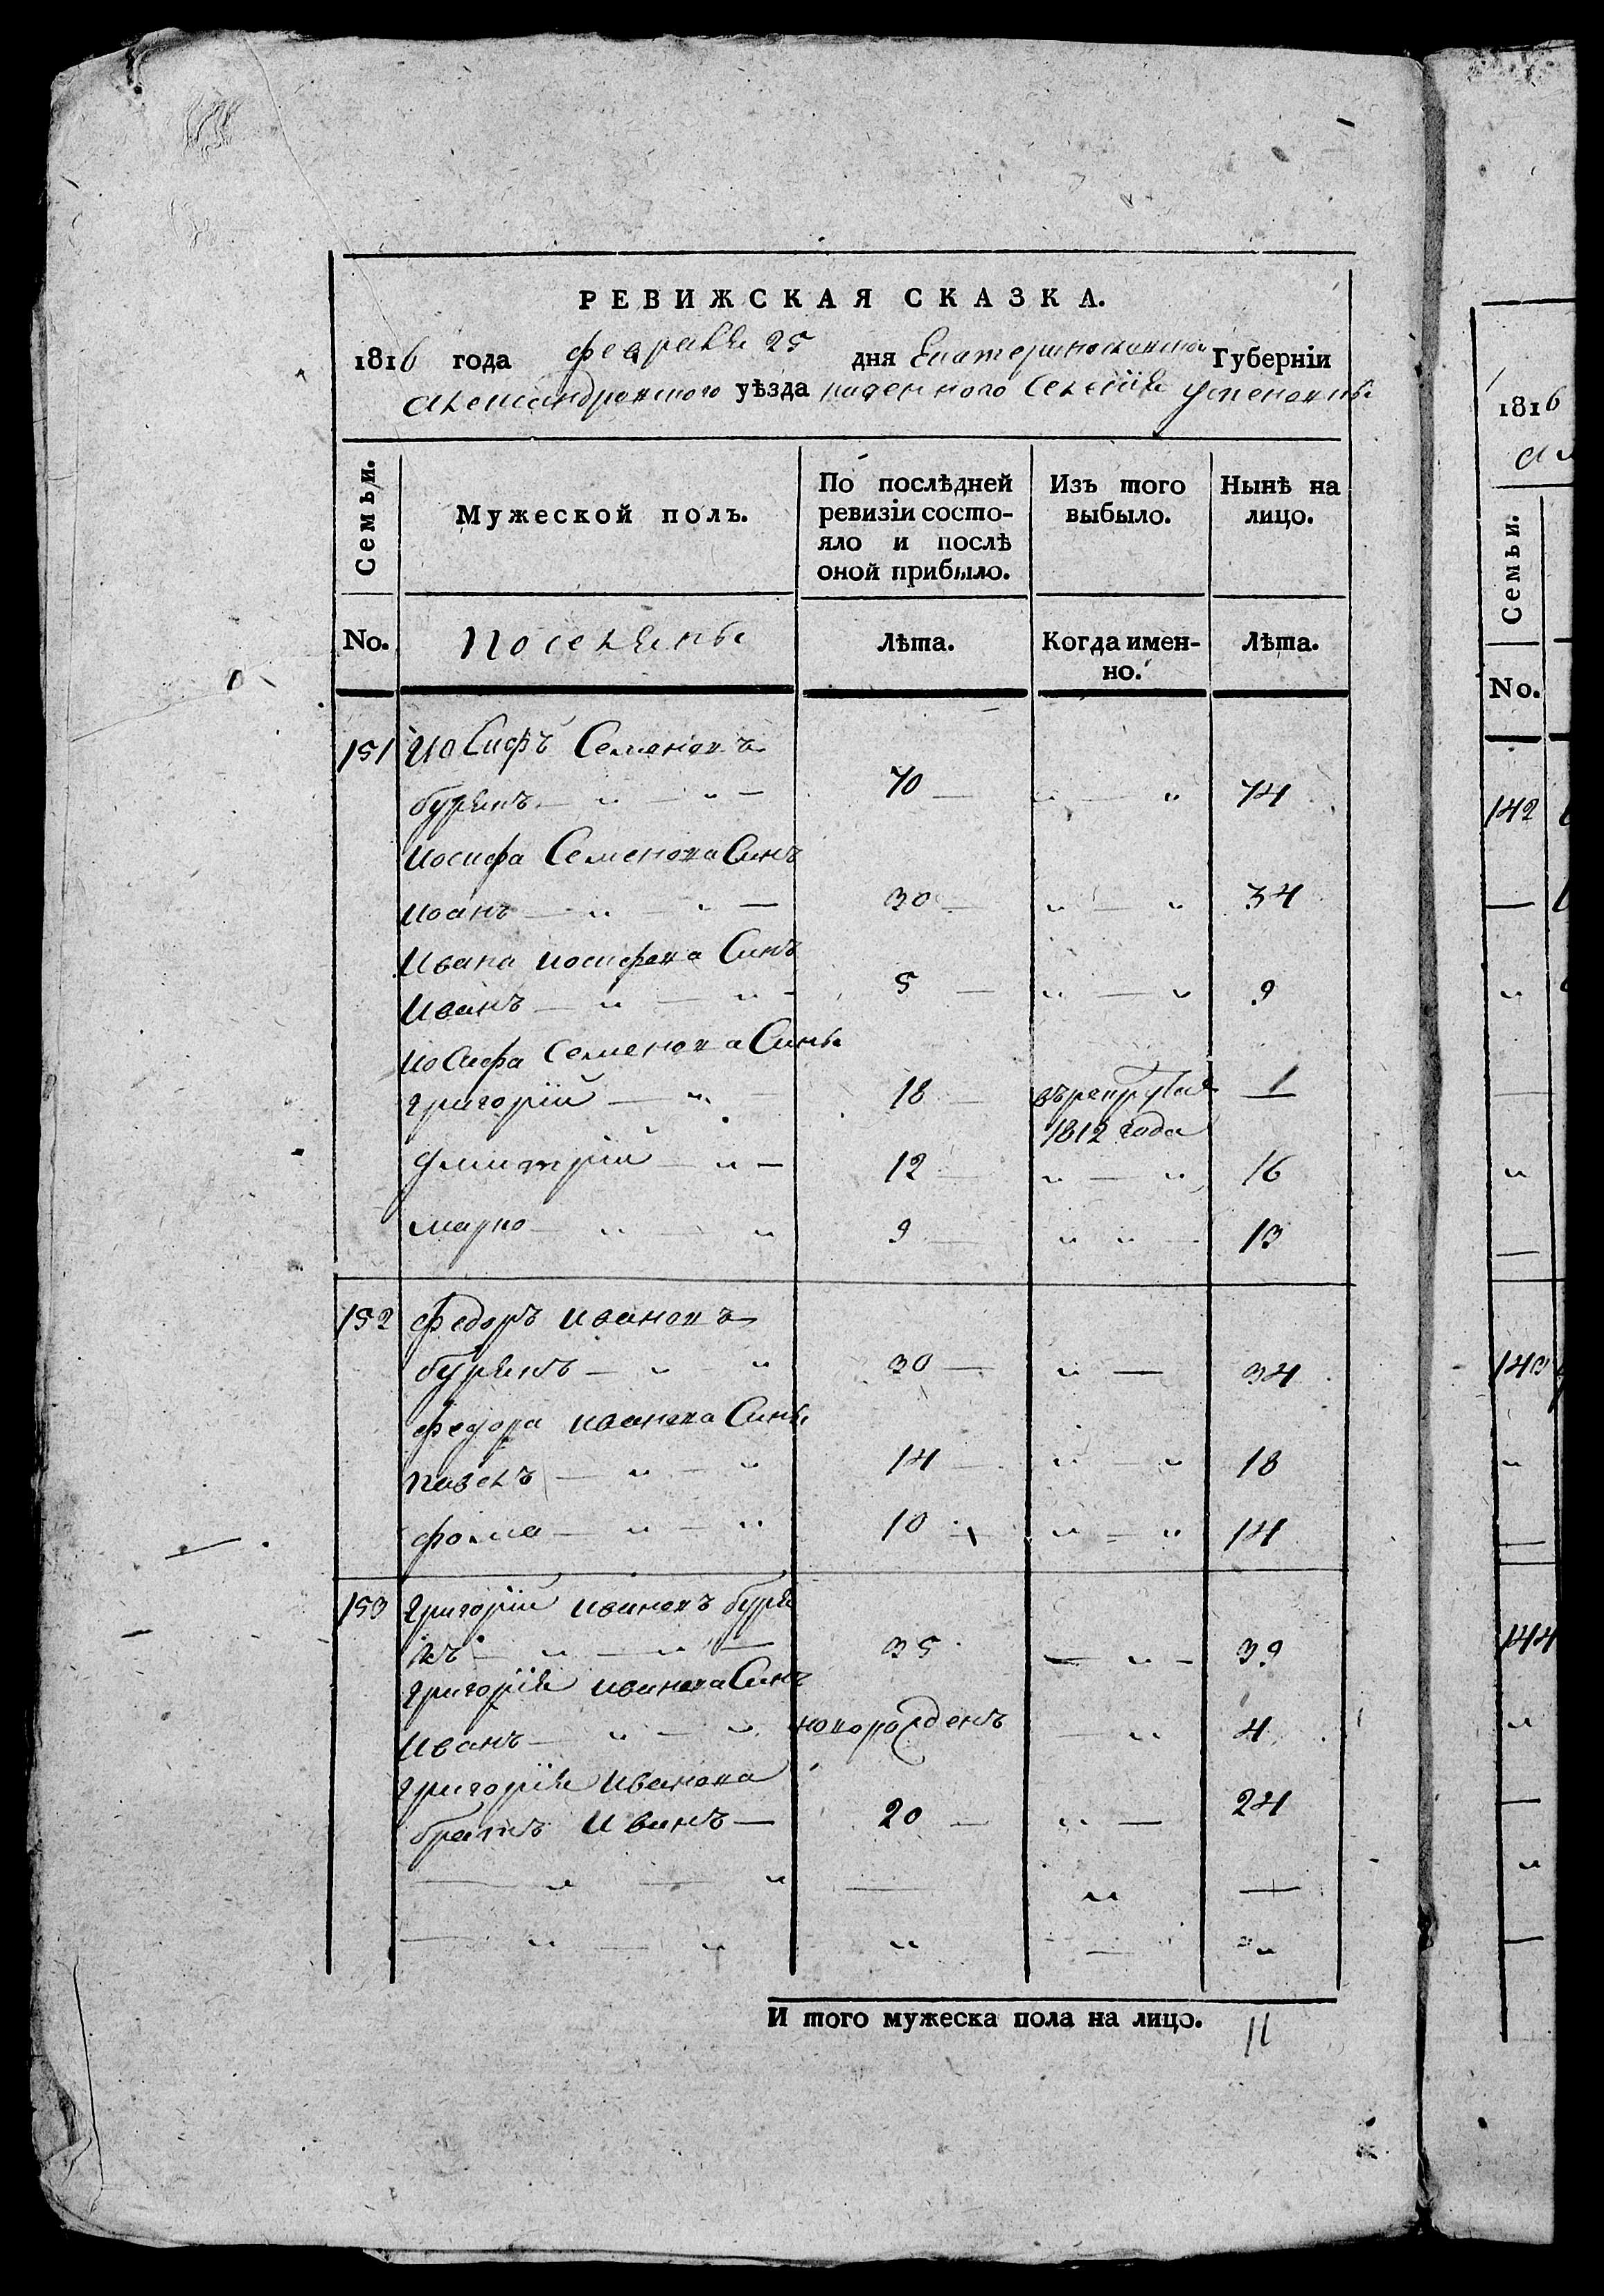 РЕВИЖСКАЯ СКАЗКА.
1816 года февраля 25 дня Екатеринославской Губерніи
Александровского уѣзда казенного Селенія Успеновки
Семьи.
Мужеской полъ.
По послѣдней
ревизіи состо-
яло и послѣ
оной прибыло.
Изъ того
выбыло.
Нынѣ на
лицо.
No.
поселяны
Лѣта.
Когда имен-
но.
Лѣта.
151 Иосифъ Семеновъ
бурякъ — „ — „ — 70 — „ — „ 74
Иосифа Семенова Синъ
Иоанъ — „ — „ — 30 — „ — „ 34
Ивана иосифова Синъ
Иванъ — „ — „ — 5 — „ — „ 9
Иосифа Семенова Сины
григорій — „ — 18 — въ рекруты —
1812 года
Дмитрій — „ — 12 — „ — „ 16
марко — „ — „ 9 — „ „ — 13
152 федоръ ивановъ
бурякъ — „ — „ 30 — „ — 34
федора иванова Сины
павелъ — „ — „ 14 — „ — „ 18
фома — „ — „ 10 — „ — „ 14
153 григорій ивановъ буря
къ — „ — „ — 35 — „ — 39
григорія иванова Синъ
Иванъ — „ — „ новорожденъ — „ 4
григорія иванова
братъ Иванъ — 20 — „ — 24
— „ — „ — „ —
— „ — „ „ — „
И того мужеска пола на лицо. 11
1816
Семьи.
No.
142
143
144